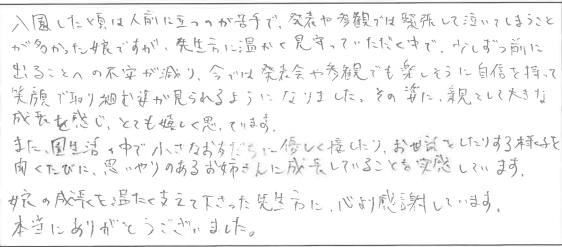 入園した頃は人前に立つのが苦手で、発表や参観では緊張して泣いてしまうこと
が多かった娘ですが、先生方に温かく見守っていただく中で、少しずつ前に
出ることへの不安が減り、今では発表会や参観でも楽しそうに自信を持って
笑顔で取り組む姿が見られるようになりました。その姿に、親として大きな
成長を感じ、とても嬉しく思っています。
また、園生活の中で小さなお友だちに優しく接したり、お世話をしたりする様子を
聞くたびに、思いやりのあるお姉さんに成長していることを実感しています。
娘の成長を温かく支えて下さった先生方に、心より感謝しています。
本当にありがとうございました。